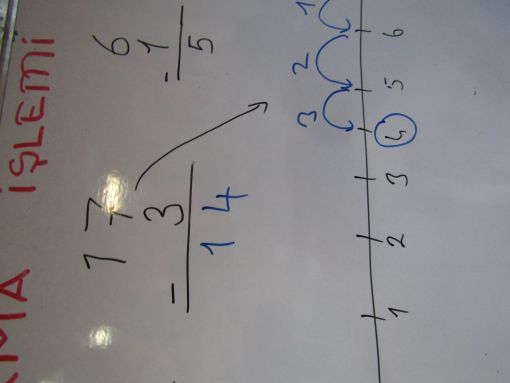 MA İŞLEMİ
17 6
- 3 - 1
14 5
3 2 1
1 2 3 4 5 6